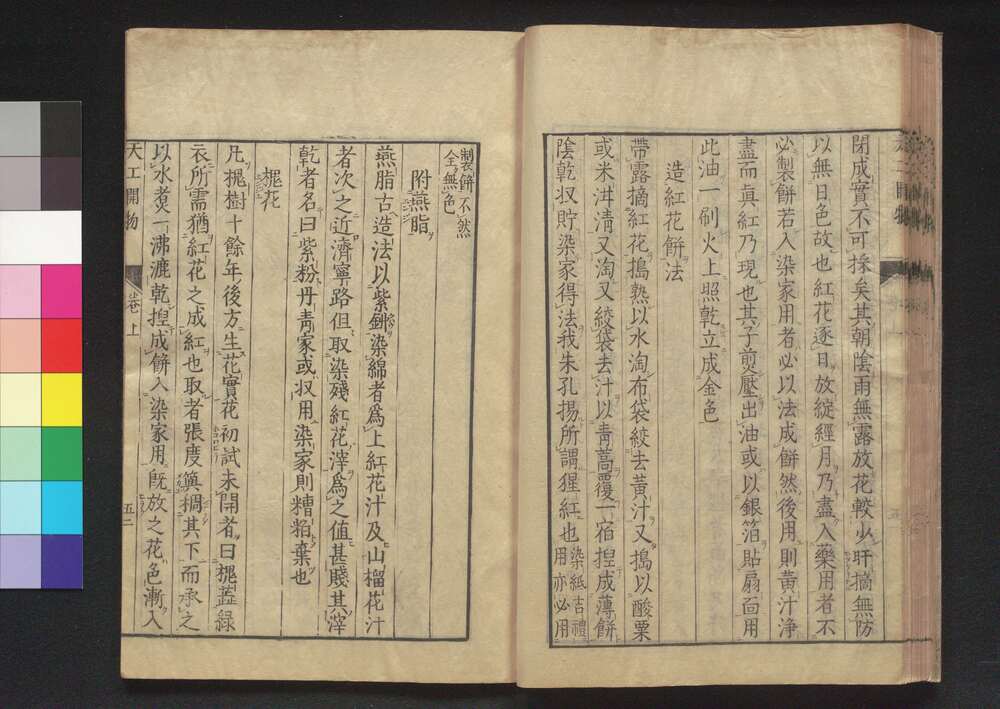 閉成實不可採矣其朝陰雨無露放花較少旰摘無防
以無日色故也紅花逐日放綻經月乃盡入藥用者不
必製餅若入染家用者必以法成餅然後用則黃汁淨
盡而真紅乃現也其子煎壓出油或以銀箔貼扇面用
此油一刷火上照乾立成金色
造紅花餅法
帶露摘紅花搗熟以水淘布袋絞去黃汁又搗以酸粟
或米泔清又淘又絞袋去汁以靑蒿覆一宿捏成薄餅
陰乾収貯染家得法我朱孔揚所謂猩紅也
染紙吉禮
用亦必用
製餅不然
全無色
附燕脂
燕脂古造法以紫鉚染綿者爲上紅花汁及山榴花汁
者次之近濟寧路但取染殘紅花滓爲之值甚賤其滓
乾者名曰紫粉丹靑家或収用染家則糟粕棄也
槐花
凡槐樹十餘年後方生花實花初試未開者曰槐蕋綠
衣所需猶紅花之成紅也取者張度籅稠其下而承之
以水煑一沸漉乾捏成餅入染家用旣放之花色漸入
天工開物
卷上
五二